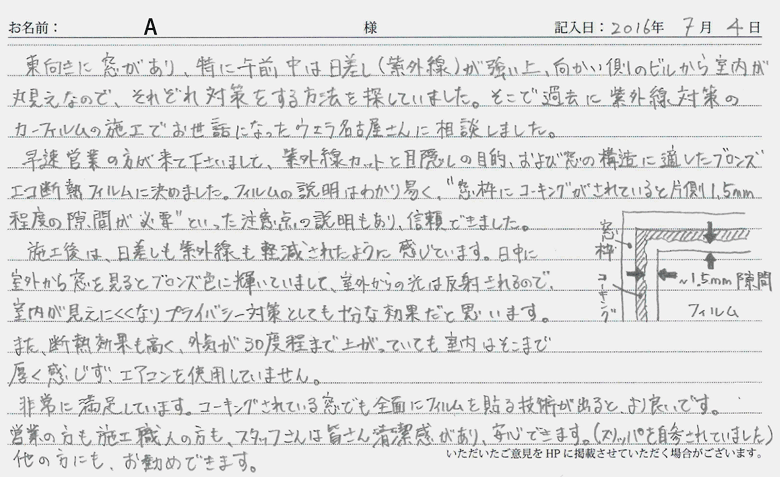 お名前: A 様 記入日:2016年 7月 4日
東向きに窓があり、特に午前中は日差し(紫外線)が強い上、向かい側のビルから室内が
丸見えなので、それぞれ対策をする方法を探していました。そこで過去に紫外線対策の
カーフィルムの施工でお世話になったウェラ名古屋さんに相談しました。
早速営業の方が来て下さいまして、紫外線カットと目隠しの目的、および窓の構造に適したブロンズ
エコ断熱フィルムに決めました。フィルムの説明はわかり易く、"窓枠にコーキングがされていると片側1.5mm
程度の隙間が必要"といった注意点の説明もあり、信頼できました。
施工後は、日差しも紫外線も軽減されたように感じています。日中に
室外から窓を見るとブロンズ色に輝いていまして、室外からの光は反射されるので、
室内が見えにくくなりプライバシー対策としても十分な効果だと思います。
また、断熱効果も高く、外気が30度程まで上がっていても室内はそこまで
厚く感じず、エアコンを使用していません。
非常に満足しています。コーキングされている窓でも全面にフィルムを貼る技術が出ると、より良いです。
営業の方も施工職人の方も、スタッフさんは皆さん清潔感があり、安心できます。(スリッパを自参されていました)
他の方にも、お勧めできます。
窓枠
コーキング
~1.5mm 隙間
フィルム
いただいたご意見をHPに掲載させていただく場合がございます。